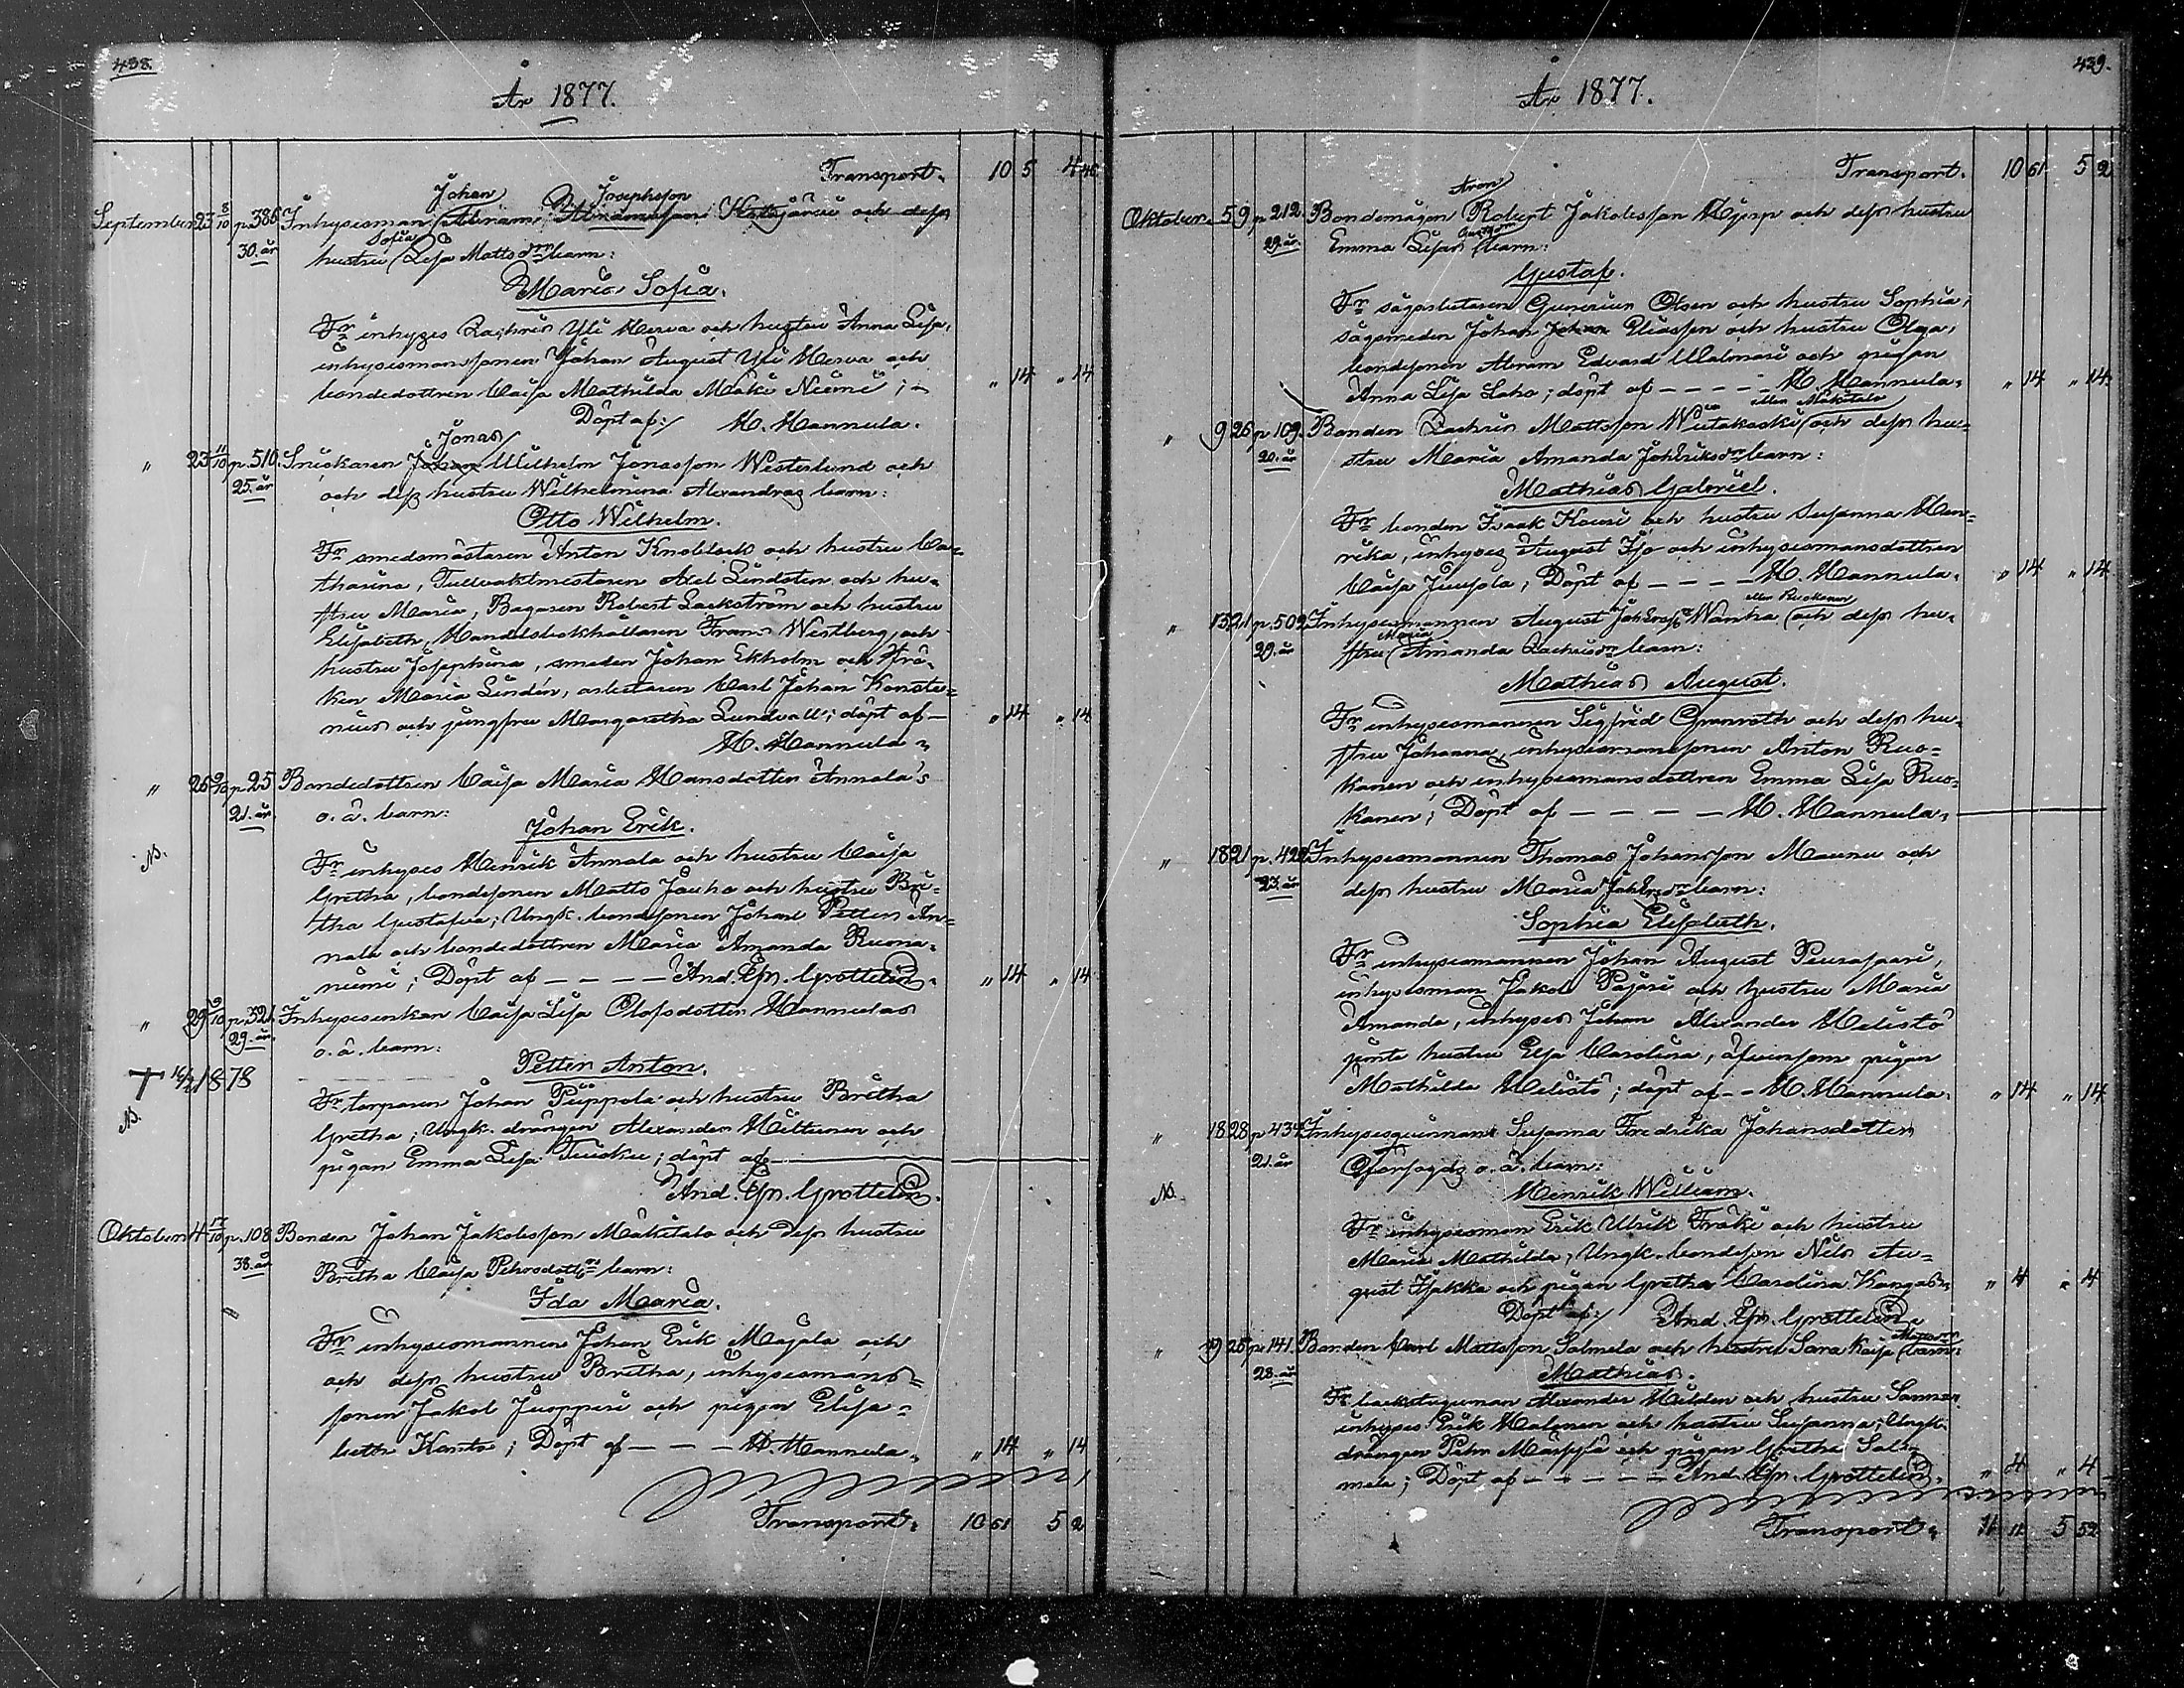 438.
År 1877.
Transport. 10 5 4 46
Johan Josephsson
September 23 8/10 p.386 Inhysesman Abram och dess
30. år Sofia
hustru Lisa Mattsdr barn:
Maria Sofia.
Fr inhyses Zachris Yli Herva och hustru Anna Lisa,
inhysesmanssonen Johan August Yli Herva och
bondedottren Caisa Mathilda Mäki Niemi; „ 14 „ 14
Döpt af: H. Hannula.
Jonas
„ 23 11/10 p.510. Snickaren Johan Wilhelm Jonasson Westerlund och
25. år och dess hustru Wilhelmina Alexandras barn:
Otto Wilhelm.
Fr smedsmästaren Anton Knoblock och hustru Ca-
tharina, Tullvaktmestaren Axel Lindsten och hu-
stru Maria, Bagaren Robert Lackström och hustru
Elisabeth, Handelsbokhållaren Frans Westberg och
hustru Josephina, smeden Johan Ekholm och frö-
ken Maria Lindén, arbetaren Carl Johan Konste-
nius och jungfru Margaretha Lundvall; döpt af — „ 14 „ 14
H. Hannula.
„ 26 /10 p.25 Bondedottren Caisa Maria Hansdotter Annala's
21. år o. ä. barn:
Johan Erik.
NB.
Fr inhyses Henrik Annala och hustru Caisa
Gretha, bondesonen Matts Jauho och hustru Bri-
tha Gustafva; Ungk. bondesonen Johan Petter An-
nala och bondedottren Maria Amanda Ruona-
niemi; Döpt af — — — — And. Gr. Grottelin. „ 14 „ 14
„ 29 /10 p.321 Inhysesenkan Caisa Lisa Olofsdotter Hannulas
29. år o. ä. barn:
Petter Anton.
† 16/2 1878
NB.
Fr torparen Johan Piippola och hustru Britha
Gretha; Ungk. drängen Alexander Hiltunen och
pigan Emma Lisa Tuisku; döpt af
And. Gr. Grottelin.
Oktober 4 /10 p.108 Bonden Johan Jakobsson Mäkitalo och dess hustru
38. år Britha Caisa Pehrsdottrs barn:
Ida Maria.
Fr inhysesmannen Johan Erik Majala och
och dess hustru Britha, inhysesmans-
sonen Jakob Juopperi och pigan Elisa-
beth Kanto; Döpt af — — — H. Hannula. „ 14 „ 14
Transport. 10 61 5 2
439.
År 1877.
Transport. 10 61 5 2
Aron
Oktober 5 9 p.212. Bondemågen Robert Jakobsson och dess hustru
29. år Emma Lisas barn:
Gustaf.
Fr sågarbetaren Gunerius Olsen och hustru Sophia,
sågsmeden Johan Johan Eliasson och hustru Olga,
bondesonen Abram Edvard Malmari och pigan
Anna Lisa Laho; döpt af — — — — H. Hannula. „ 14 „ 14
eller Mäkitalo
„ 9 26 p 109. Bonden Zachris Mattsson Wiitakoski och dess hu-
20. år stru Maria Amanda Joh:Eriksdrs barn:
Mathias Gabriel.
Fr bonden Isaak Kouri och hustru Susanna Hen-
rika, inhyses August Iso och inhysesmansdottren
Caisa Juusola; Döpt af — — — — H. Hannula. „ 14 „ 14
eller Ruokanen
„ 15 21 p.509. Inhysesmannen August Joh:Erss. Wanha och dess hu-
Maria
29. år stru Amanda Zachrisdrs barn:
Mathias August.
Fr inhysesmannen Sigfrid Granroth och dess hu-
stru Johanna, inhysesmanssonen Anton Ruo-
kanen och inhysesmansdottren Emma Lisa Ruo-
kanen; Döpt af — — — — H. Hannula.
„ 18 21 p.422 Inhysesmannen Thomas Johansson Maunu och
23. år dess hustru Maria barn:
Sophia Elisabeth.
Fr inhysesmannen Johan August Peurasaari,
inhysesman Jakob Pajari och hustru Maria
Amanda, inhyses Johan Alexander Helistö
jemte hustru Elsa Carolina, äfvensom pigan
Mathilda Helistö; döpt af — — H. Hannula. „ 14 „ 14
„ 18 28 p 434 Inhysesqvinnans Susanna Fredrika Johansdotter
21. år o. ä. barn:
Henrik William.
NB.
Fr inhysesman Erik Ulrik Fräki och hustru
Maria Mathilda; Ungk. bondeson Nils Au-
gust Isakka och pigan Gretha Carolina Kangas. „ 4 „ 4
Döpt af: And. Gr. Grottelin.
„ 19 25 p.141. Bonden Carl Mattsson Salmela och hustru Sara Kaisa barn:
28. år Mathias.
Fr backstuguman Alexander Hilden och hustru Sanna,
inhyses Erik Halonen och hustru Susanna; Ungk.
drängen Pehr Marppa och pigan Gretha Sal-
mela; Döpt af — — — — And. Gr. Grottelin. „ 4 „ 4
Transport. 11 11 5 52